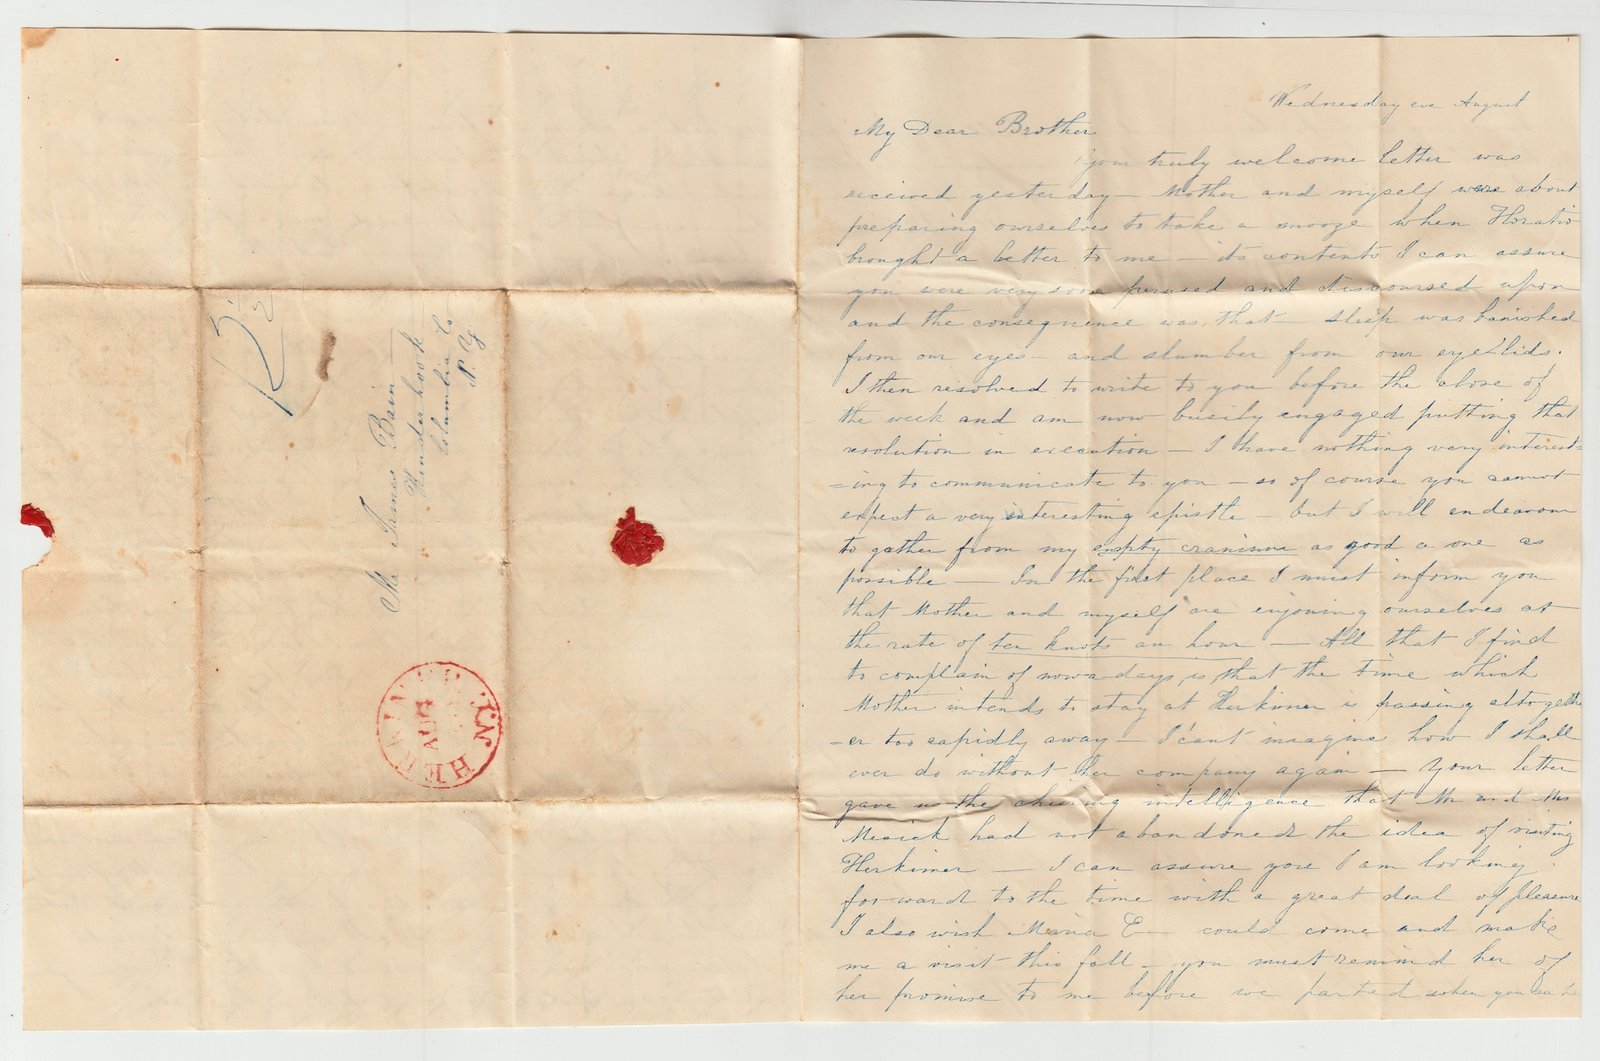 12½
Mr James Bain
Kinderhook
Columbia Co
N. Y
HERKIMER
AUG
N.Y.
Wednesday eve August
My Dear Brother
Your truly welcome letter was
received yesterday — Mother and myself were about
preparing ourselves to take a snooze when Horatio
brought a letter to me — its contents I can assure
you were very soon perused and discoursed upon
and the consequence was, that — sleep was banished
from our eyes — and slumber from our eyelids.
I then resolved to write to you before the close of
the week and am now busily engaged putting that
resolution in execution — I have nothing very interest=
=ing to communicate to you — so of course you cannot
expect a very interesting epistle — but I will endeavour
to gather from my empty cranium as good a one as
possible — In the first place I must inform you
that Mother and myself are enjoying ourselves at
the rate of ten knots an hour — All that I find
to complain of nowadays is, that the time which
Mother intends to stay at Herkimer is passing altogeth
-er too rapidly away — I cant imagine how I shall
ever do without her company again — Your letter
gave us the cheering intelligence that Mr and Mrs
Mesick had not abandoned the idea of visiting
Herkimer — I can assure you I am looking
forward to the time with a great deal of pleasure
I also wish Maria E— could come and make
me a visit this fall — you must remind her of
her promise to me before we parted when you see he